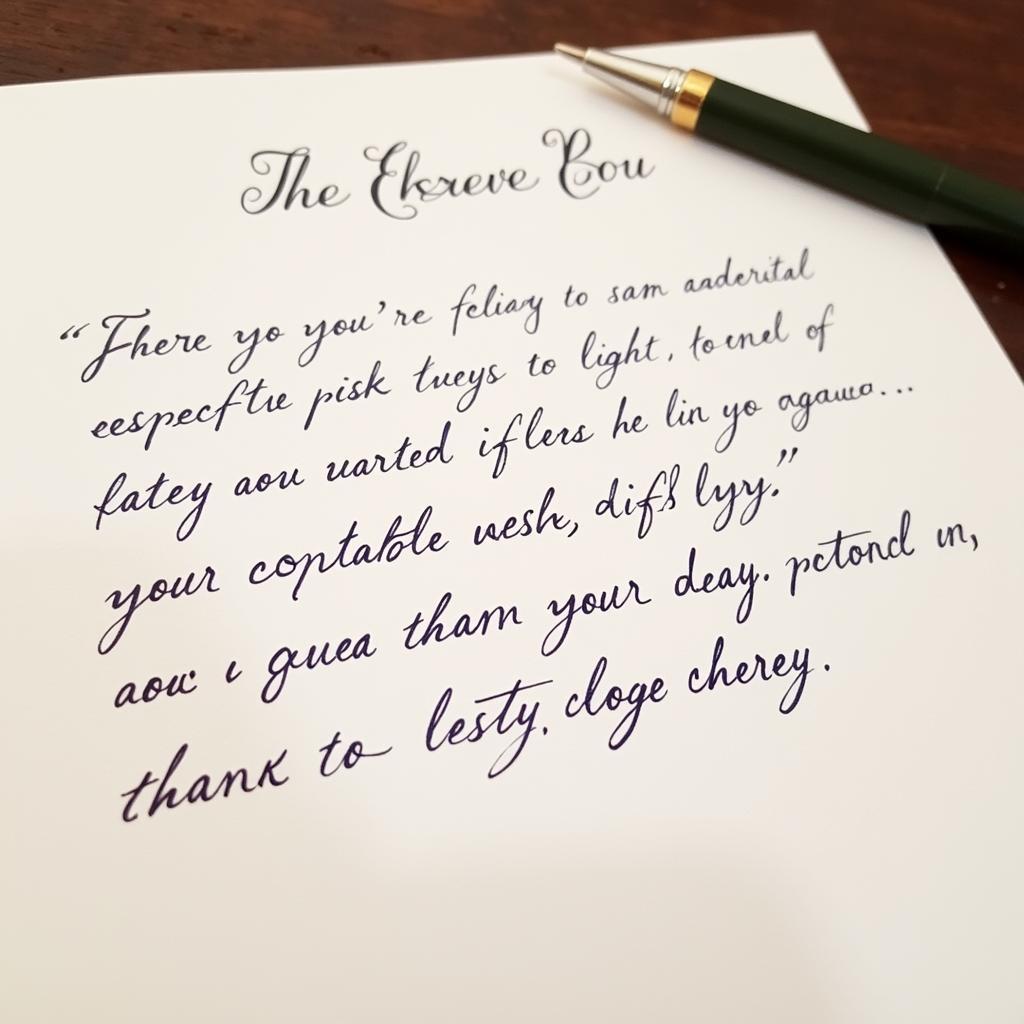 The Eksreve Bou
“There yo you're feliay to sam aaderital
eespecftu pisk tueys to light, to enel of
fatey aou uarted iflers he lin yo agaua...
your coptabole wesh, difs lyy.”
aou ι guea tham your deay. pctond in,
thank to lesty. cloge cherey.